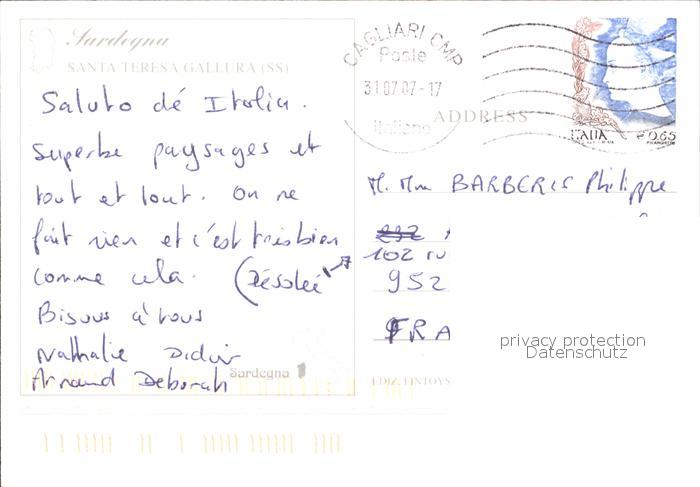 Sardegna
SANTA TERESA GALLURA (SS)
Saluto dé Italia.
Superbe paysages et
tout et tout. On ne
fait rien et c'est très bien
comme cela. (Désolée
Bisous à vous
Nathalie Didier
Arnaud Deborah
Sardegna
CAGLIARI CMP
Poste
31 07 07-17
Italiane
ADDRESS
ITALIA € 0,65
M. Mme BARBERIS Philippe
232
102 ru
952
FRA
EDIZ. FINTOYS
privacy protection
Datenschutz